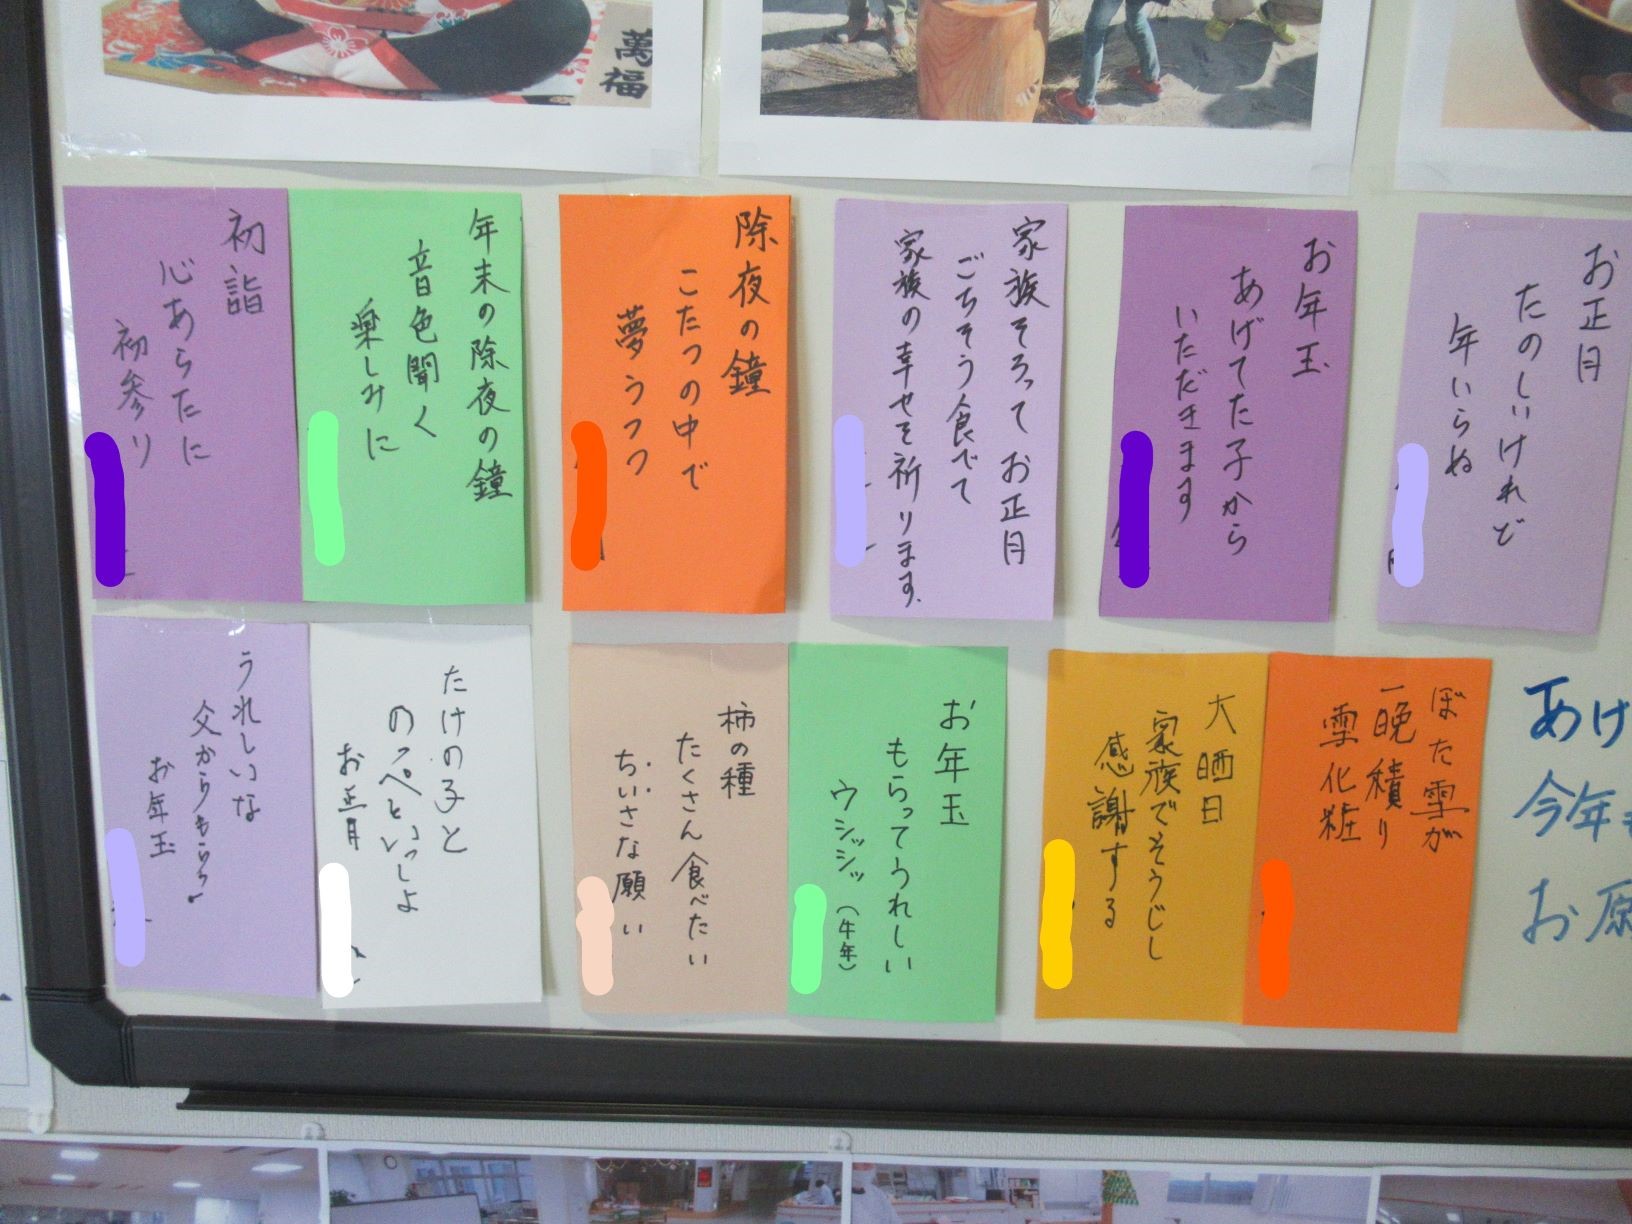 萬福
初詣
心あらたに
初参り
年末の除夜の鐘
音色聞く
楽しみに
除夜の鐘
こたつの中で
夢うつつ
家族そろってお正月
ごちそう食べて
家族の幸せを祈ります。
お年玉
あげてた子から
いただきます
お正月
たのしいけれど
年いらぬ
うれしいな
父からもらう
お年玉
たけの子と
のっぺといっしょ
お正月
柿の種
たくさん食べたい
ちいさな願い
お年玉
もらってうれしい
ウシッシッ(牛年)
大晒日
家族でそうじし
感謝する
ぼた雪が
一晩積り
雪化粧
あけ
今年も
お願